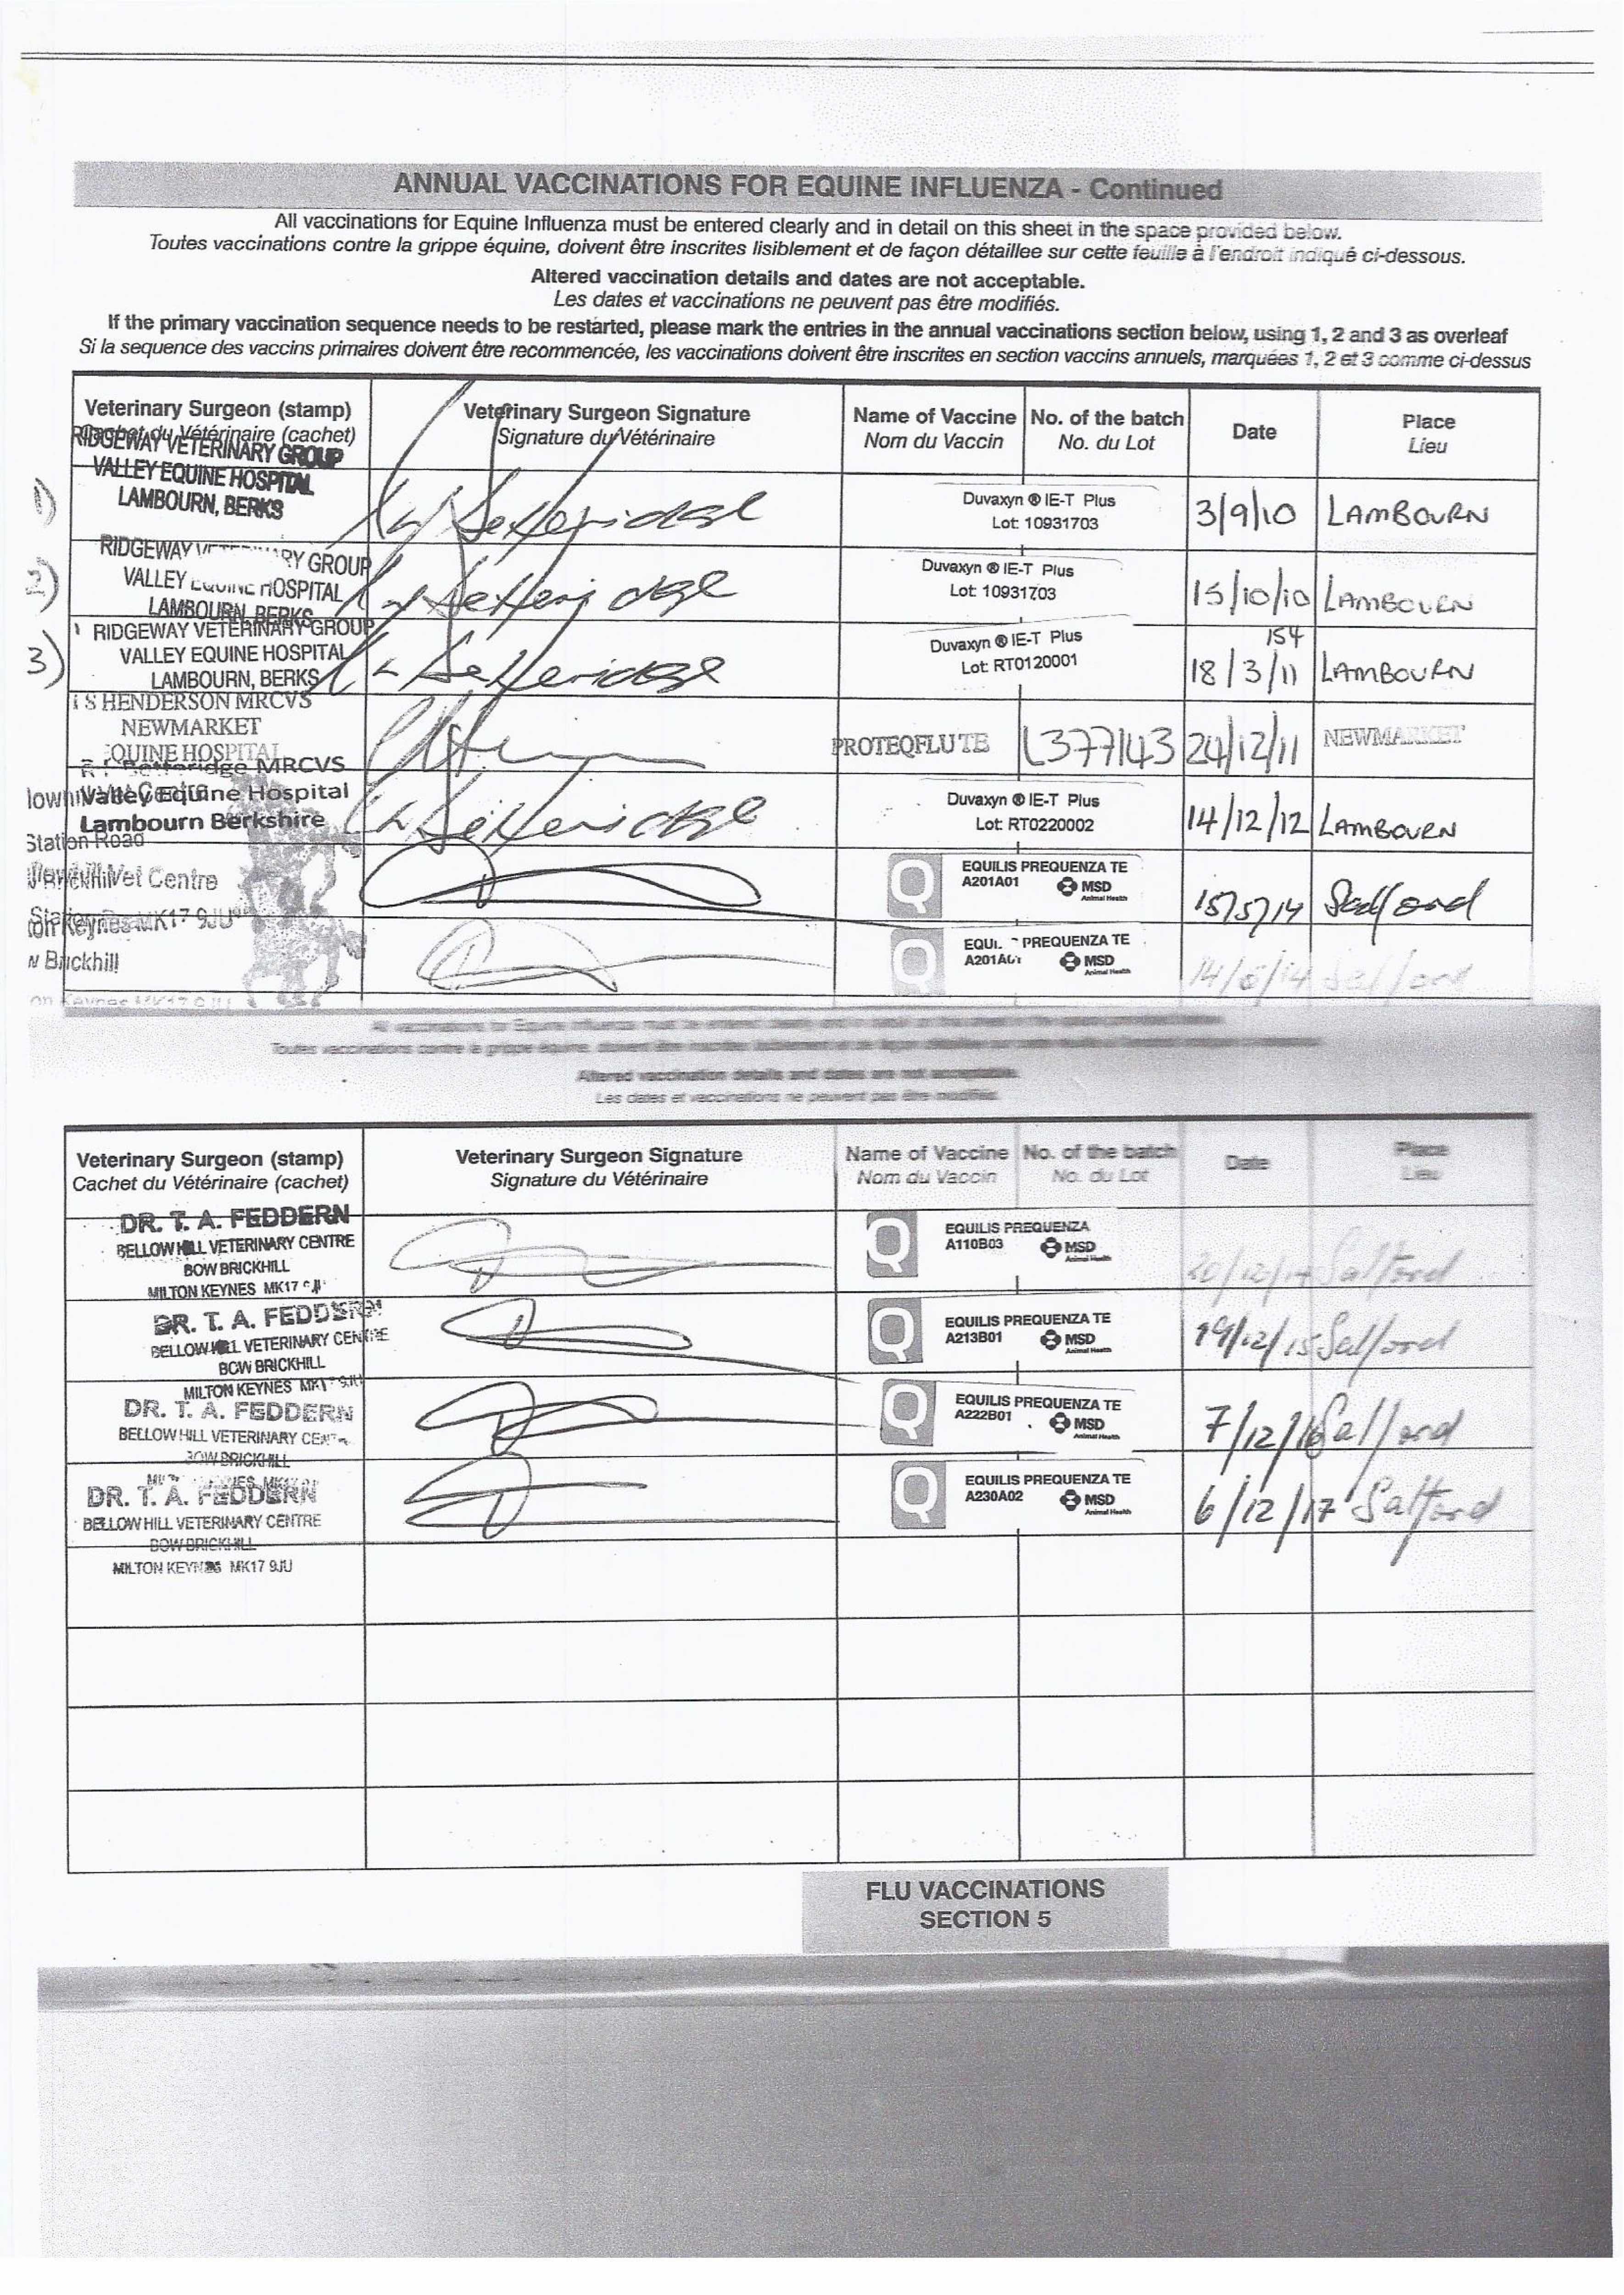 ANNUAL VACCINATIONS FOR EQUINE INFLUENZA - Continued
All vaccinations for Equine Influenza must be entered clearly and in detail on this sheet in the space provided below.
Toutes vaccinations contre la grippe équine, doivent être inscrites lisiblement et de façon détaillee sur cette feuille à l'endroit indiqué ci-dessous.
Altered vaccination details and dates are not acceptable.
Les dates et vaccinations ne peuvent pas être modifiés.
If the primary vaccination sequence needs to be restarted, please mark the entries in the annual vaccinations section below, using 1, 2 and 3 as overleaf
Si la sequence des vaccins primaires doivent être recommencée, les vaccinations doivent être inscrites en section vaccins annuels, marquées 1, 2 et 3 comme ci-dessus
Veterinary Surgeon (stamp) Veterinary Surgeon Signature Name of Vaccine No. of the batch Date Place
Cachet du Vétérinaire (cachet) Signature du Vétérinaire Nom du Vaccin No. du Lot Lieu
RIDGEWAY VETERINARY GROUP
VALLEY EQUINE HOSPITAL
1) LAMBOURN, BERKS Duvaxyn ® IE-T Plus 3/9/10 LAMBOURN
Lot: 10931703
RIDGEWAY GROUP
2) VALLEY EQUINE HOSPITAL Duvaxyn ® IE-T Plus 15/10/10 LAMBOURN
LAMBOURN, BERKS Lot: 10931703
RIDGEWAY VETERINARY GROUP 154
3) VALLEY EQUINE HOSPITAL Duvaxyn ® IE-T Plus 18/3/11 LAMBOURN
LAMBOURN, BERKS Lot: RT0120001
S HENDERSON MRCVS
NEWMARKET PROTEQFLU TE L377143 24/12/11 NEWMARKET
EQUINE HOSPITAL
MRCVS
Valley Equine Hospital Duvaxyn ® IE-T Plus 14/12/12 LAMBOURN
Lambourn Berkshire Lot: RT0220002
Station Road
Vet Centre EQUILIS PREQUENZA TE 15/5/14 Salford
A201A01 MSD
Animal Health
MK17 9JU
Brickhill PREQUENZA TE Salford
MSD
Animal Health
All vaccinations for Equine Influenza must be entered clearly and in detail on this sheet in the space provided below.
Toutes vaccinations contre la grippe équine, doivent être inscrites lisiblement et de façon
Altered vaccination details and dates are not acceptable.
Les dates et vaccinations ne peuvent pas être modifiés.
Veterinary Surgeon (stamp) Veterinary Surgeon Signature Name of Vaccine No. of the batch Date Place
Cachet du Vétérinaire (cachet) Signature du Vétérinaire Nom du Vaccin No. du Lot Lieu
DR. T. A. FEDDERN
BELLOW HILL VETERINARY CENTRE EQUILIS PREQUENZA Salford
BOW BRICKHILL A110B03 MSD
MILTON KEYNES MK17 Animal Health
DR. T. A. FEDDERN
BELLOW HILL VETERINARY CENTRE EQUILIS PREQUENZA TE 19/12/15 Salford
BOW BRICKHILL A213B01 MSD
MILTON KEYNES MK17 9JU Animal Health
DR. T. A. FEDDERN EQUILIS PREQUENZA TE 7/12/16 Salford
BELLOW HILL VETERINARY A222B01 MSD
BOW BRICKHILL Animal Health
DR. T. A. FEDDERN EQUILIS PREQUENZA TE 6/12/17 Salford
BELLOW HILL VETERINARY CENTRE A230A02 MSD
BOW BRICKHILL Animal Health
MILTON KEYNES MK17 9JU
FLU VACCINATIONS
SECTION 5